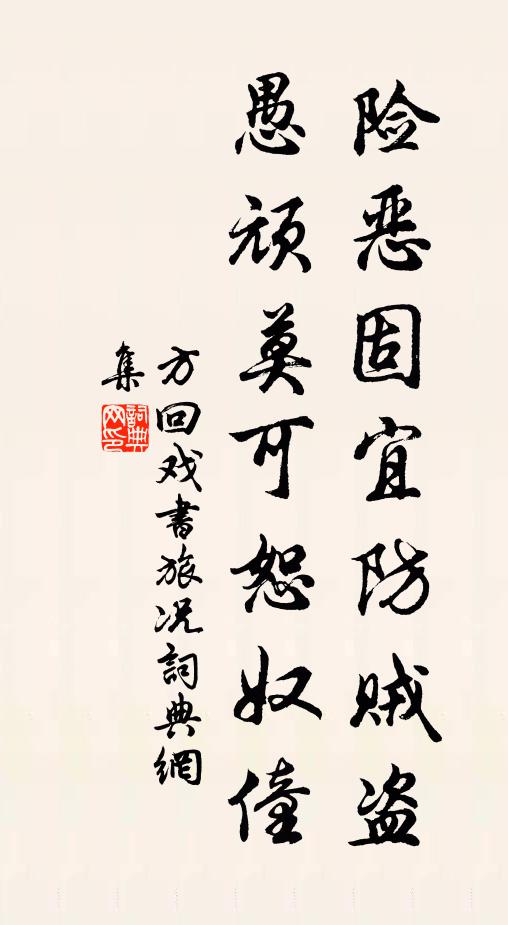 险恶固宜防贼盗
愚顽莫可恕奴僮
方回戏书旅况詞典網
集
詞典網印